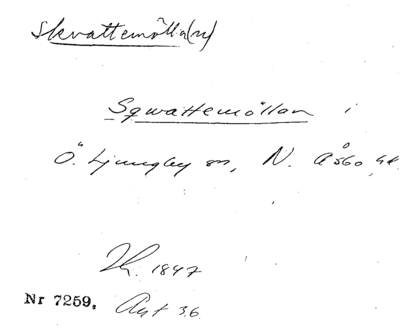 Skvattemölla(n)
Sqwattemöllan i
Ö. Ljungby sn, N. Åsbo hd.
1847
Nr 7259. Avt 36